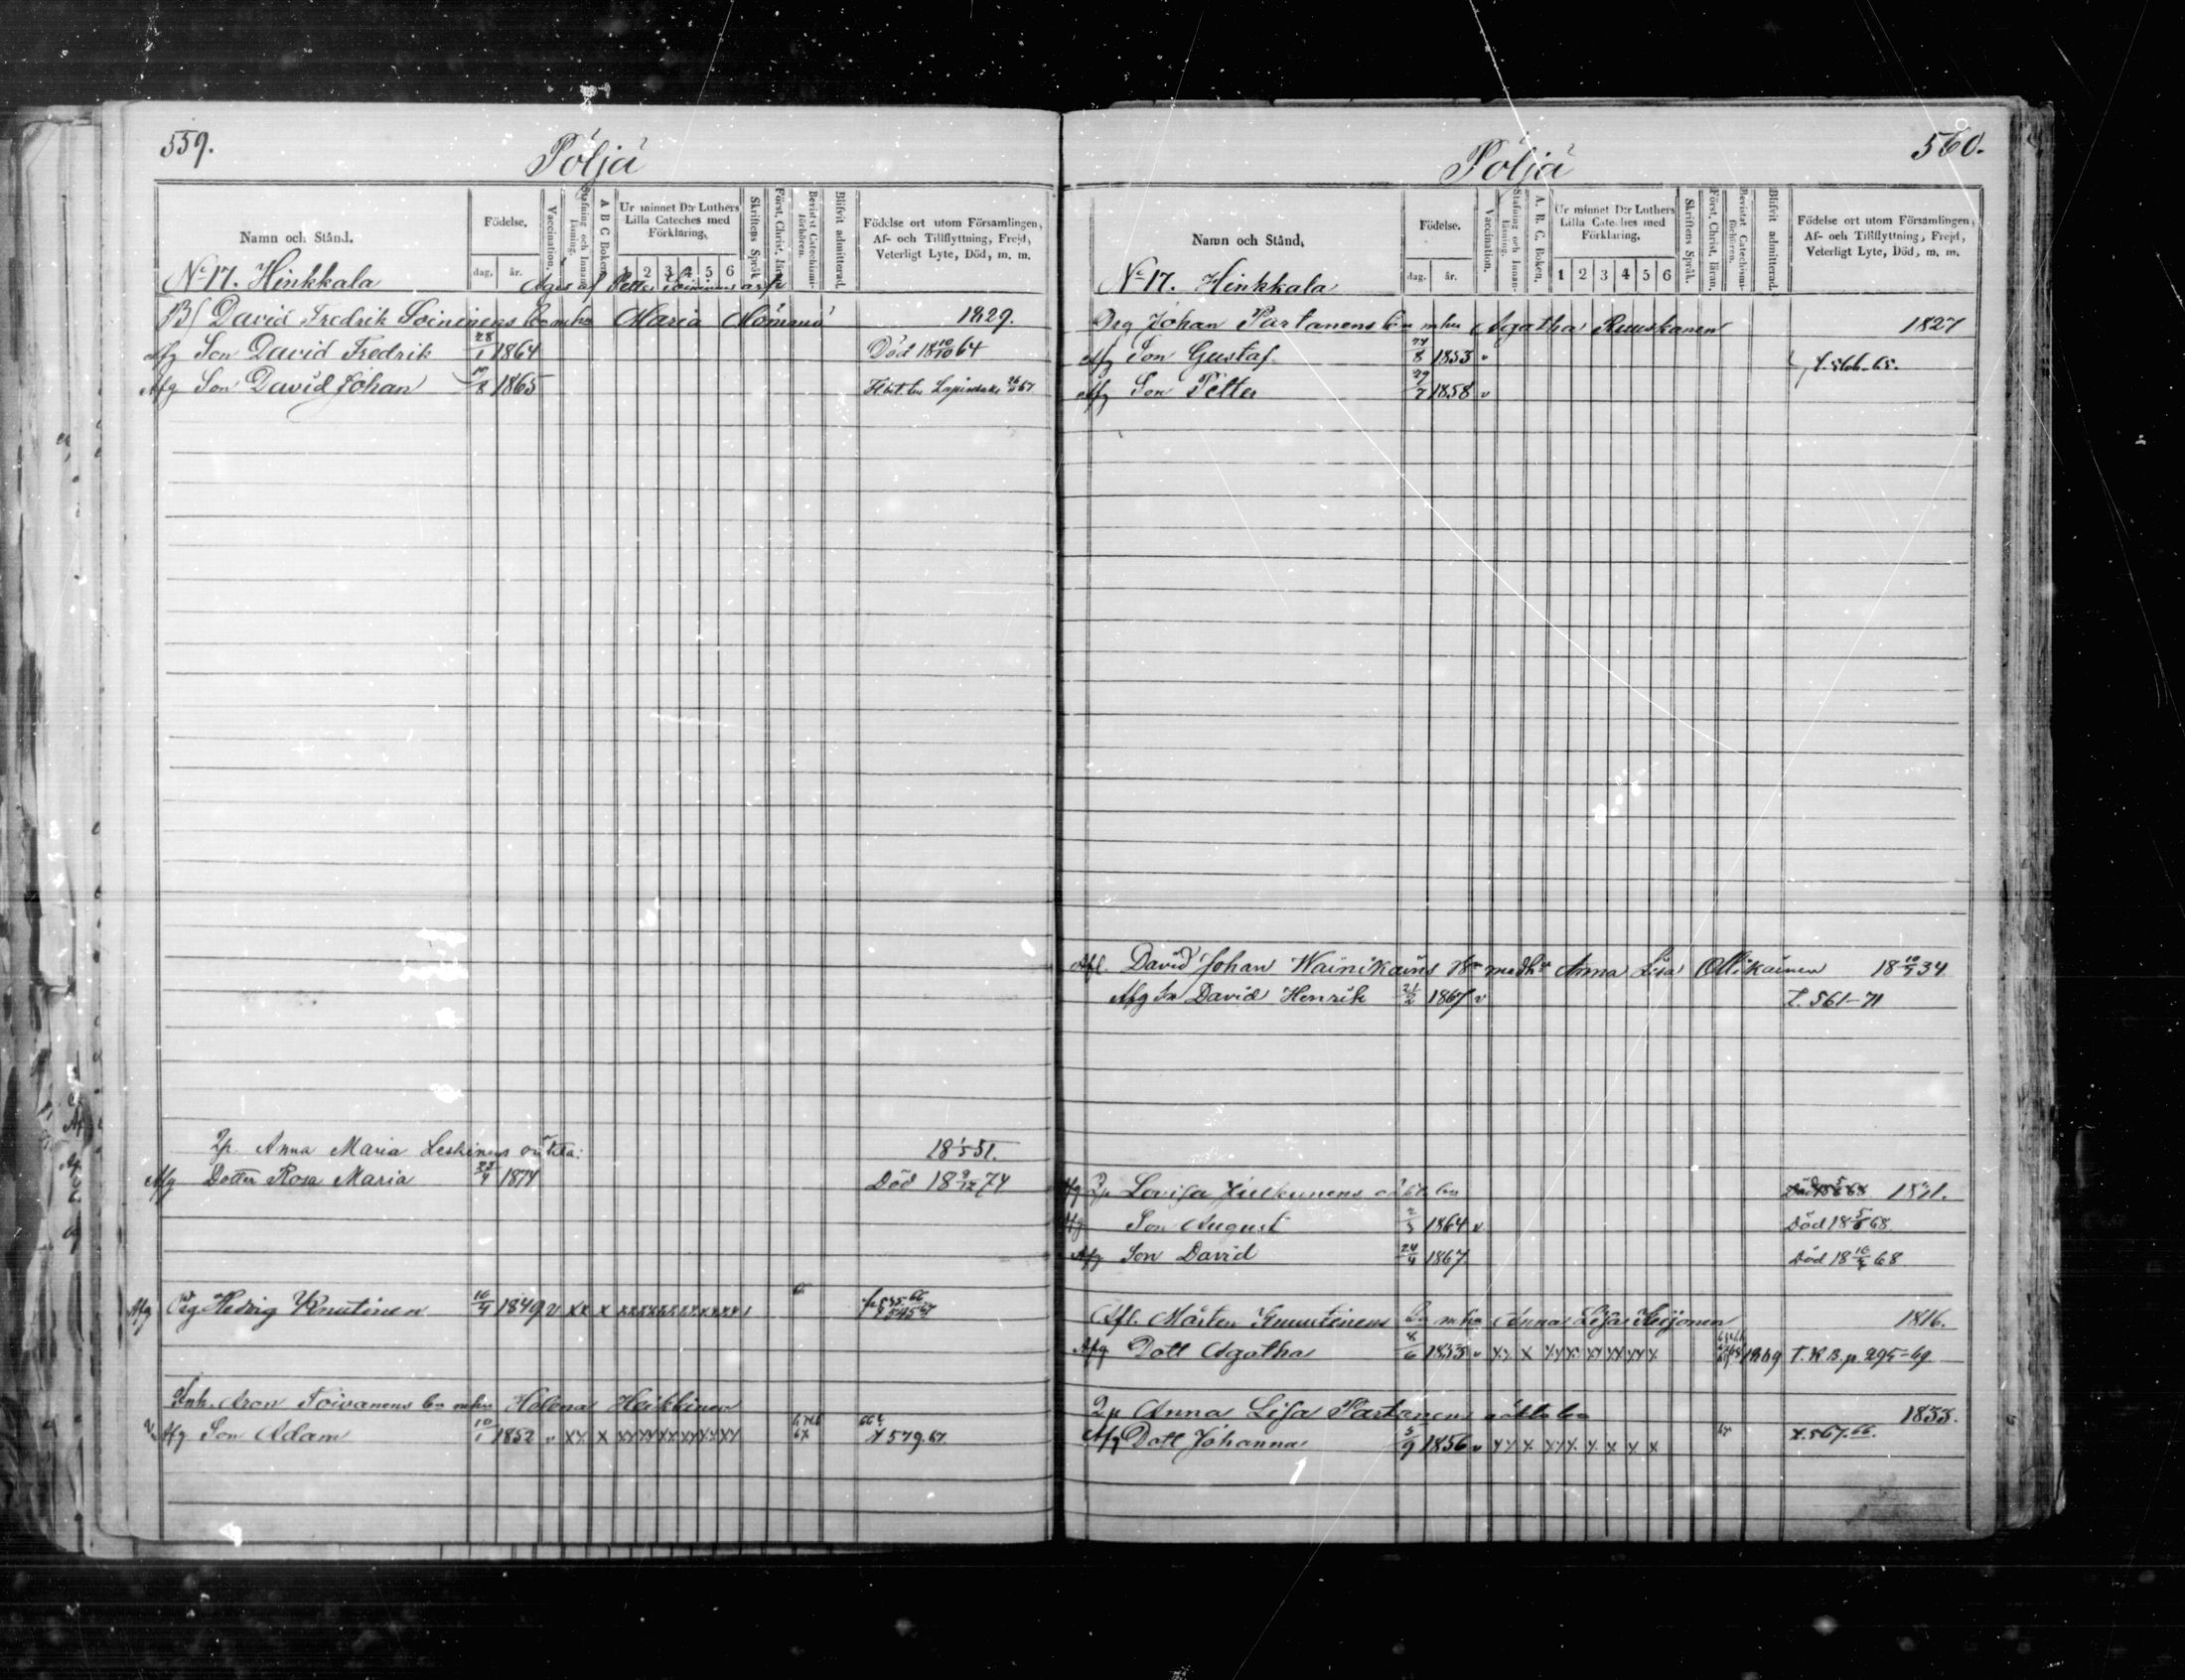 559.
Pöljä
Namn och Stånd.
Födelse.
dag. år.
Vaccination.
Stafning och Innanläsning.
A B C Boken.
Ur minnet D:r Luthers Lilla Cateches med Förklaring.
1 2 3 4 5 6
Skriftens Språk.
Förit. Christ. läran.
Bevistat Catechismiförhören.
Blifvit admitterad.
Födelse ort utom Församlingen,
Af- och Tillflyttning, Frejd,
Veterligt Lyte, Död, m. m.
No 17. Hinkkala
Petter Soininens
B/ David Fredrik Soininens bn m hu Maria 1829.
Afg Son David Fredrik 28/1 1864 Död 18 10/10 64
Afg Son David Johan 1865
Ip. Anna Maria Leskinens oäkta: 18 1/5 51.
Afg Dotter Rosa Maria 1874 Död 18 9/12 74
Afg Pig Hedvig Knutinen 16/9 1849 v xx x
Inh. Aron Toivanens bn m hu Helena Heikkinen
Afg Son Adam 10/1 1852 v xx x xx xx xx xx xx xx 579.67
560.
Pöljä
Namn och Stånd.
Födelse.
dag. år.
Vaccination.
Stafning och Innanläsning.
A. B. C. Boken.
Ur minnet D:r Luthers Lilla Cateches med Förklaring.
1 2 3 4 5 6
Skriftens Språk.
Förit. Christ. läran.
Bevistat Catechismiförhören.
Blifvit admitterad.
Födelse ort utom Församlingen,
Af- och Tillflyttning, Frejd,
Veterligt Lyte, Död, m. m.
No 17. Hinkkala
Drg Johan Partanens bn m hu Agatha Ruuskanen 1827
Afg Son Gustaf 1853 v
Afg Son Petter 29/7 1858 v
Afl. David Johan Wainikains med hu Anna Lisa Ollikainen 18 10/5 34
Afg Sn David Henrik 21/2 1867 v t. 561-71
Afg Ip Lovisa oäkta bn
Afg Son August 2/3 1864 v Död 18 68
Afg Son David 24/4 1867. Död 18 68
Afl. Mårten Knuutinens bn m hu Anna Lisa 1816.
Afg Dott Agatha 8/6 1853 v xx x 1869 T. K B. p 295-69
Ip Anna Lisa Partanens oäkta bn 1833.
Afg Dott Johanna 5/9 1856 v xx x x. 567.66.